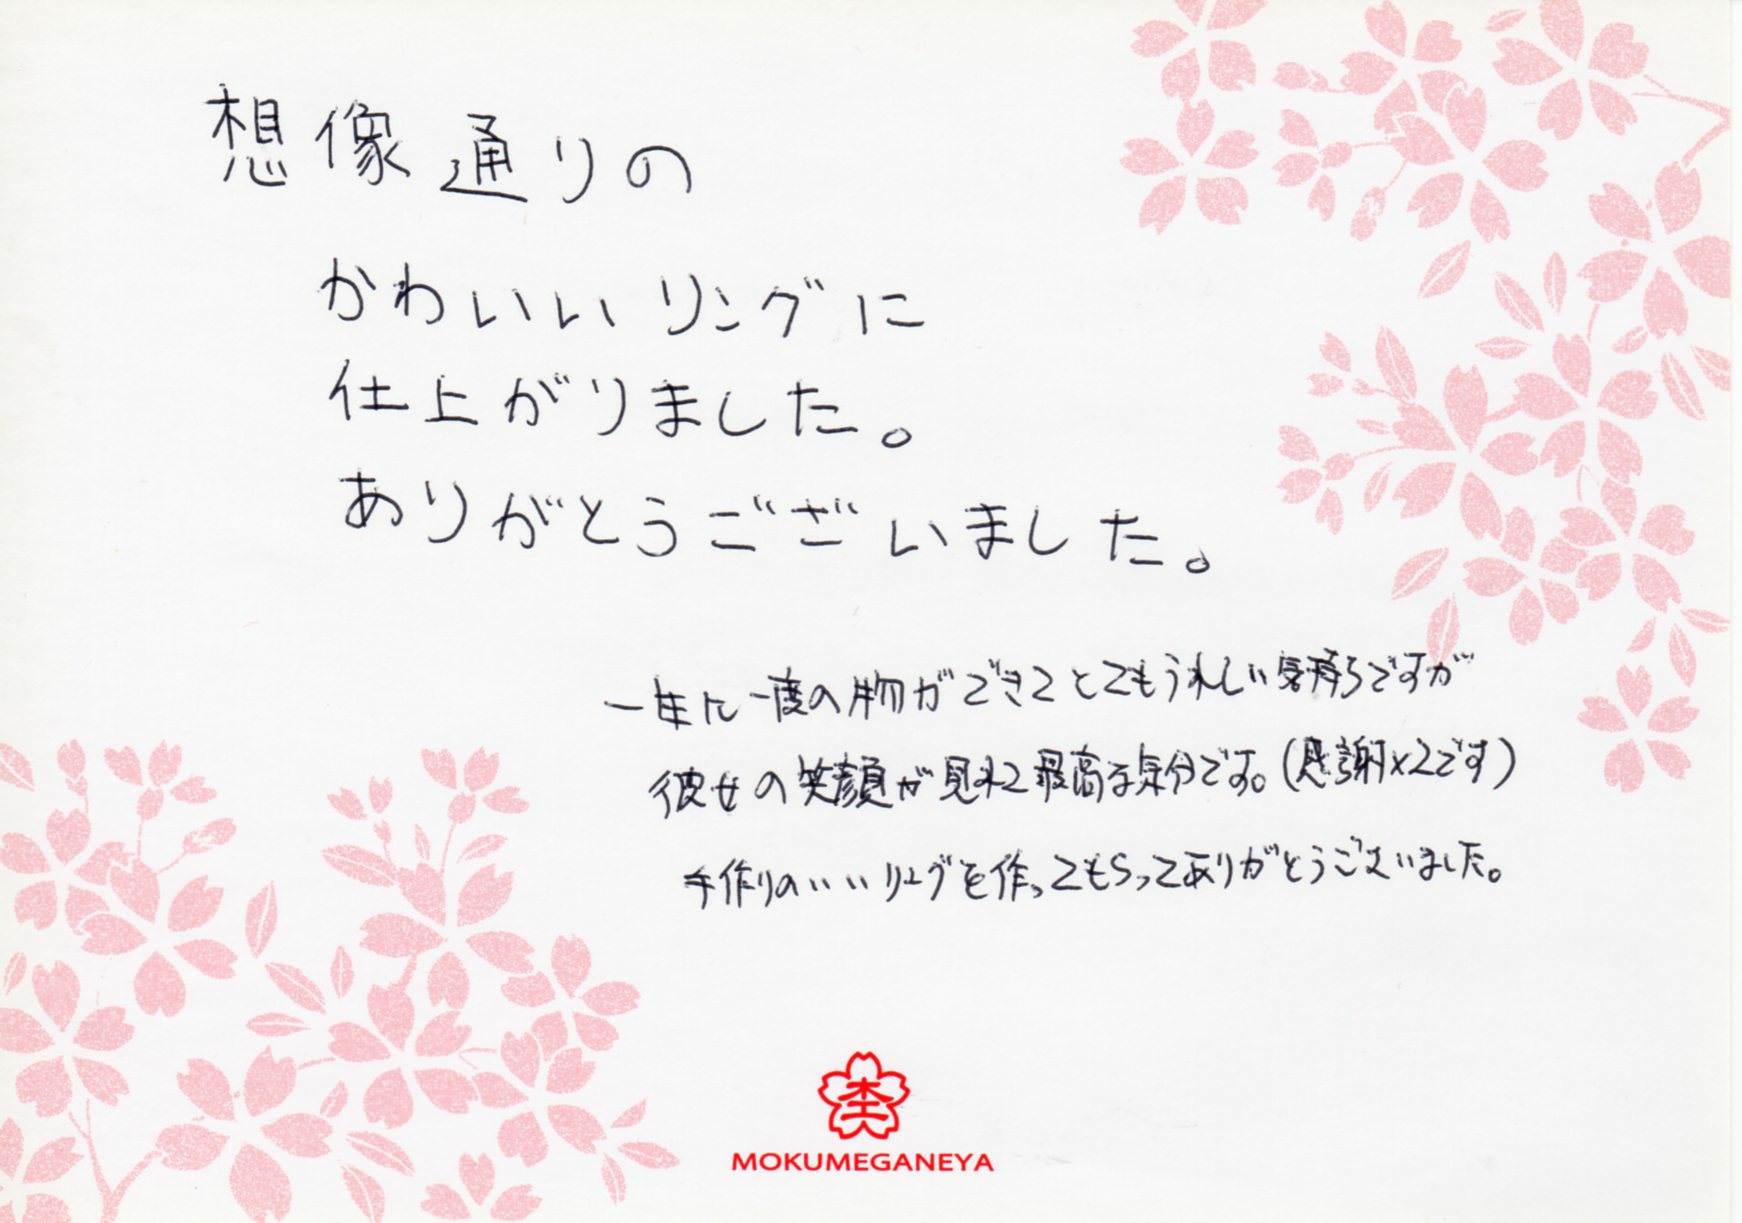 想像通りの
かわいいリングに
仕上がりました。
ありがとうございました。
一生に一度の物ができてとてもうれしい気持ちですが
彼女の笑顔が見れて最高な気分です。(感謝×2です)
手作りのいいリングを作ってもらってありがとうございました。
MOKUMEGANEYA